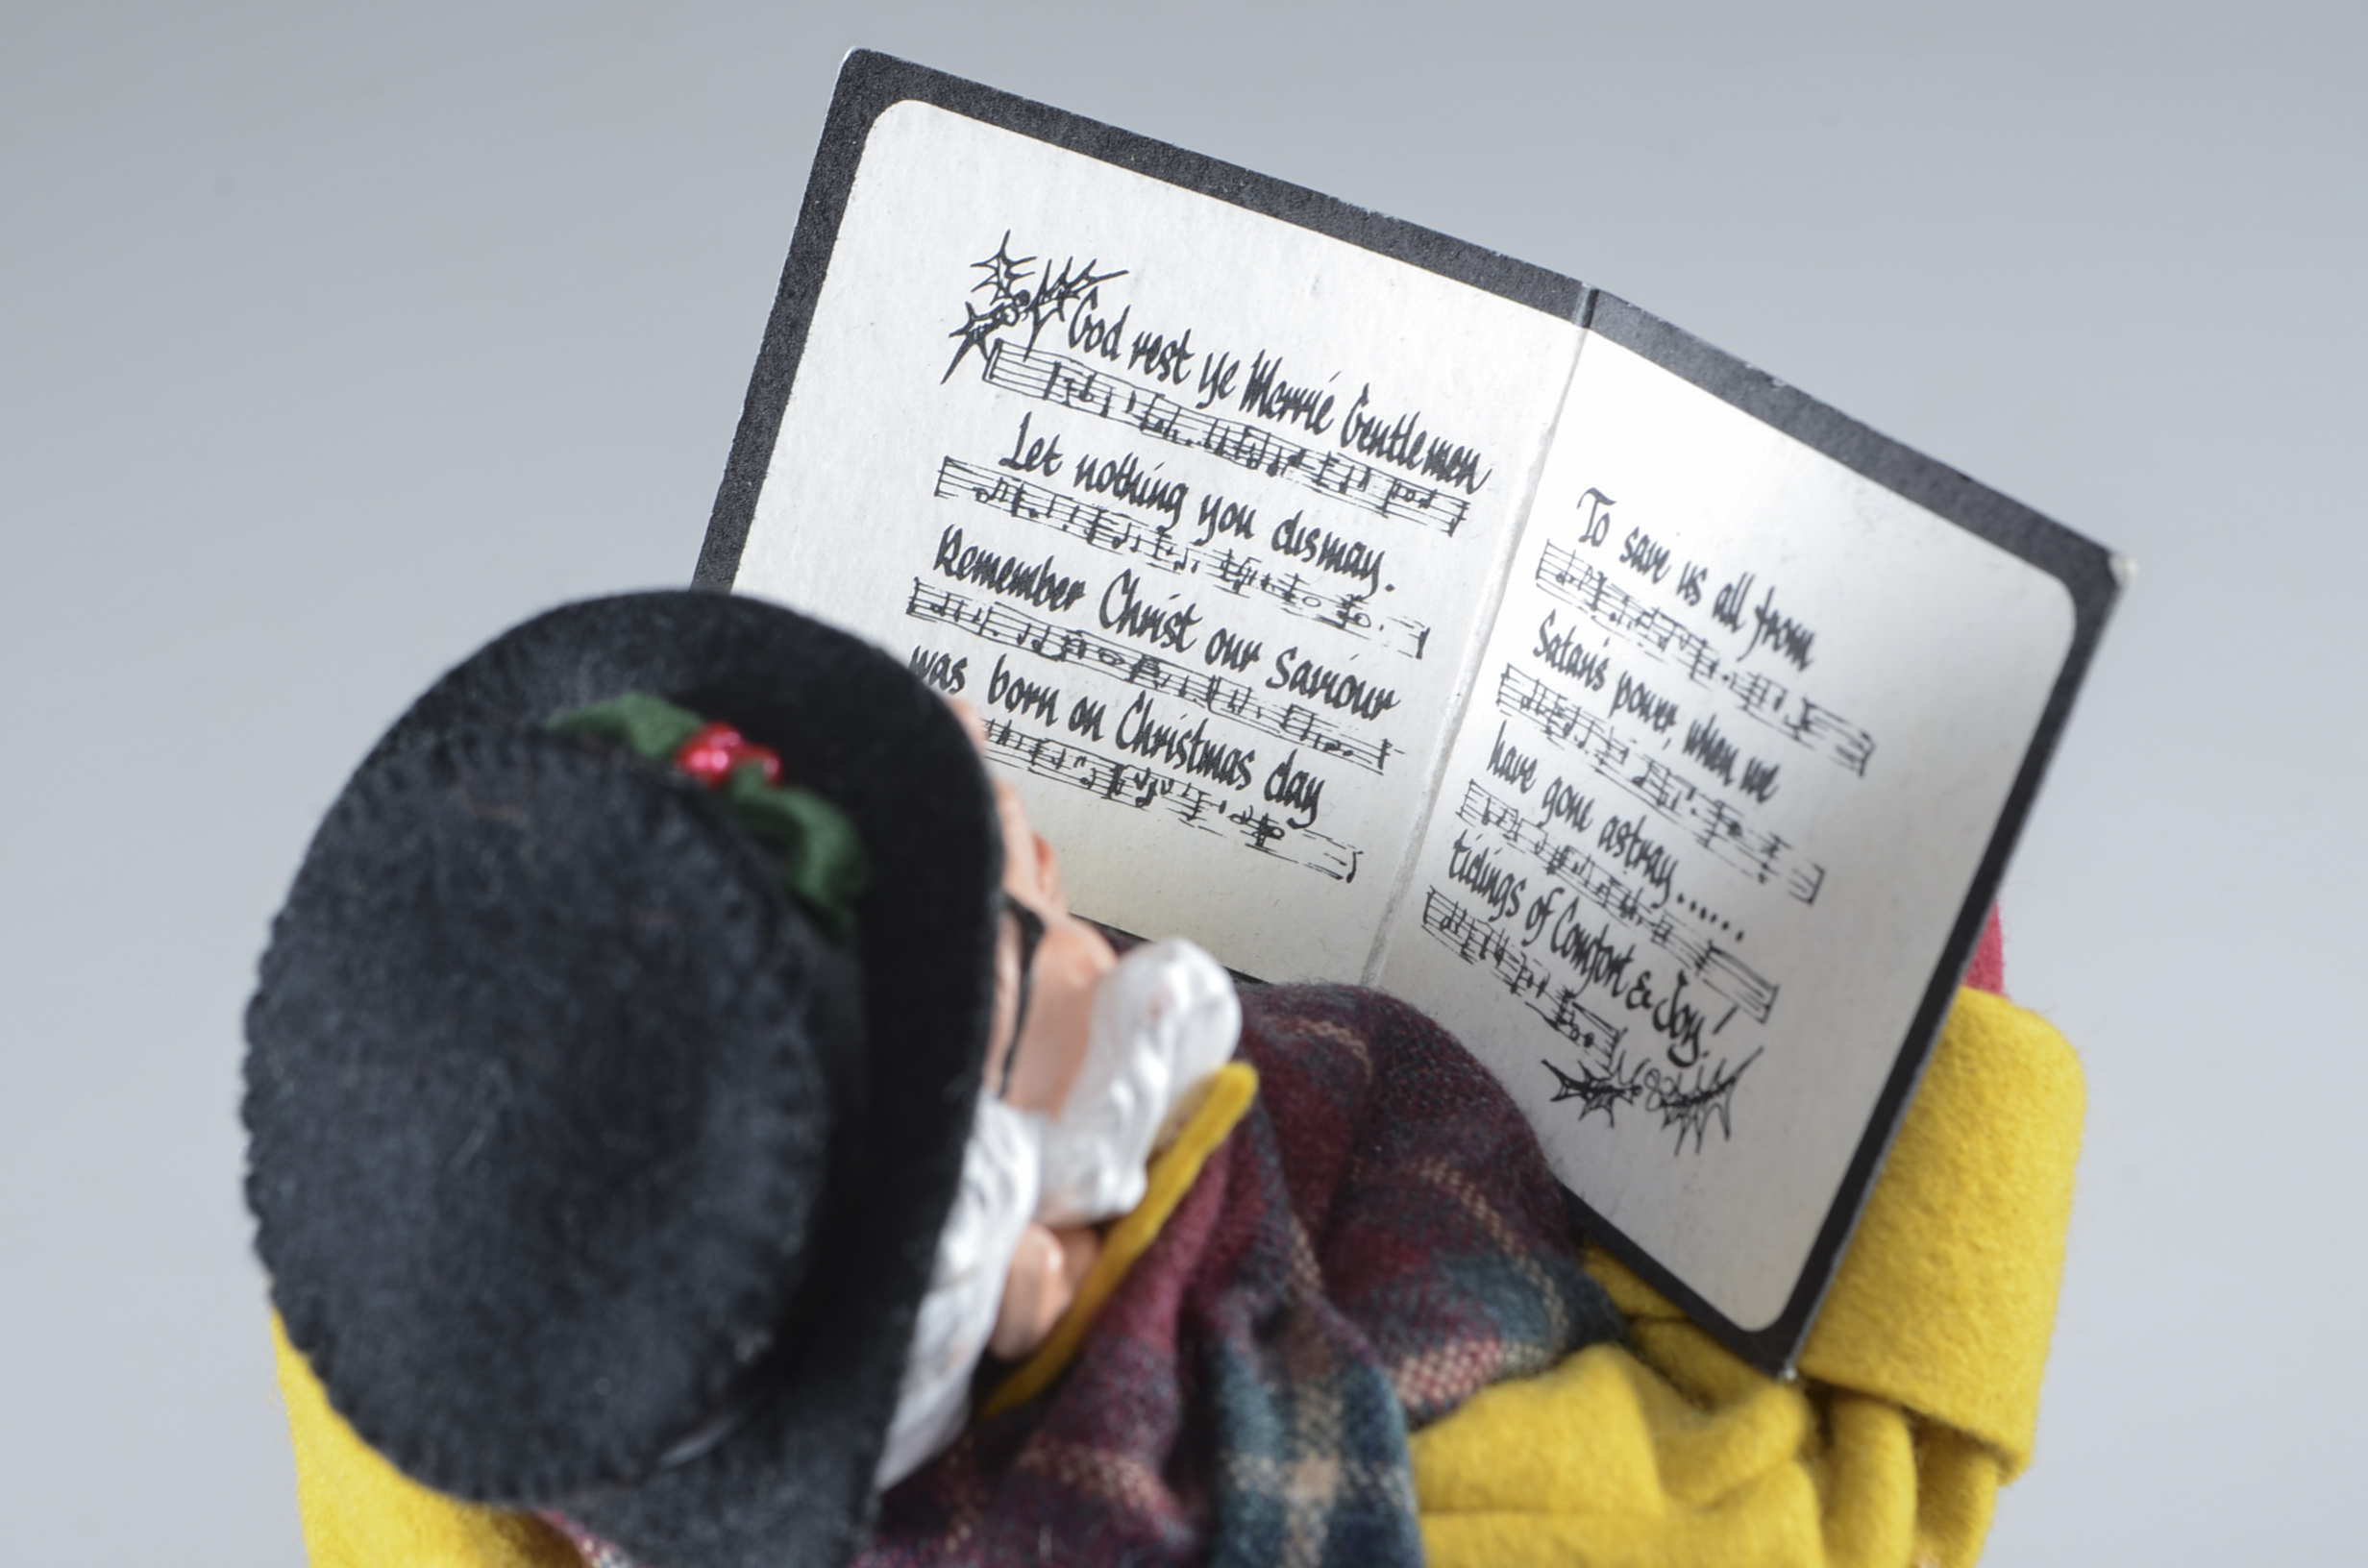 God rest ye Merrie Gentlemen
Let nothing you dismay.
Remember Christ our Saviour
was born on Christmas day
To save us all from
Satan's power, when we
have gone astray......
tidings of Comfort & Joy!